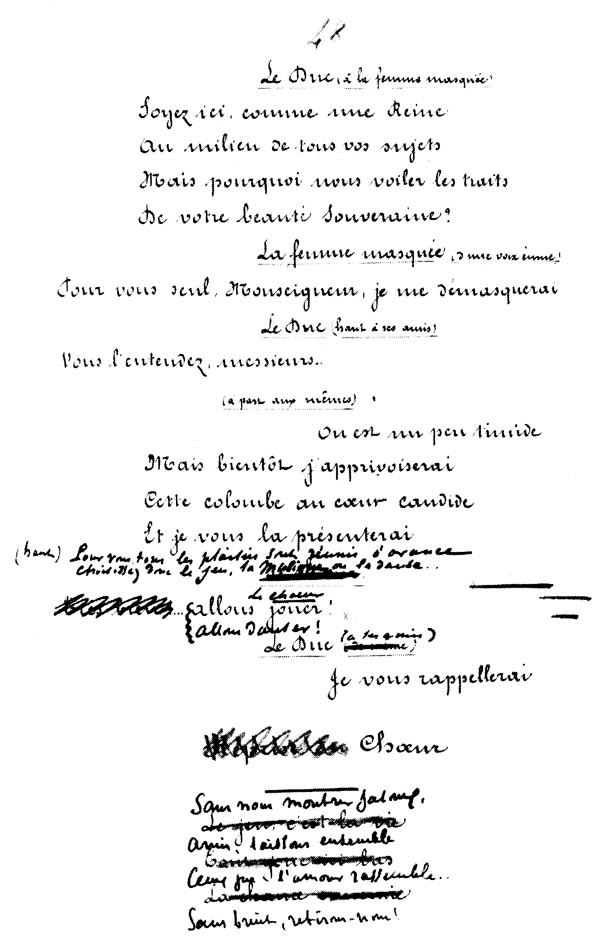 48
Le Duc (à la femme masquée)
Soyez ici, comme une Reine
Au milieu de tous vos sujets
Mais pourquoi nous voiler les traits
De votre beauté Souveraine?
La femme masquée (d'une voix émue)
Pour vous seul, Monseigneur, je me démasquerai
Le Duc (haut à ses amis)
Vous l'entendez, messieurs..
(à part aux mêmes)
On est un peu timide
Mais bientôt j'apprivoiserai
Cette colombe au cœur candide
Et je vous la présenterai
(haut) Pour vous, tous les plaisirs sont réunis d'avance
Choisissez donc le jeu, la musique ou la danse..
Le chœur
allons jouer!
allons danser!
Le Duc (à ses amis)
(de même)
Je vous rappellerai
Chœur
Sans nous montrer jaloux,
Le jeu, c'est la vie
Amis, laissons ensemble
Ceux que l'amour rassemble..
La chance
Sans bruit, retirons-nous!